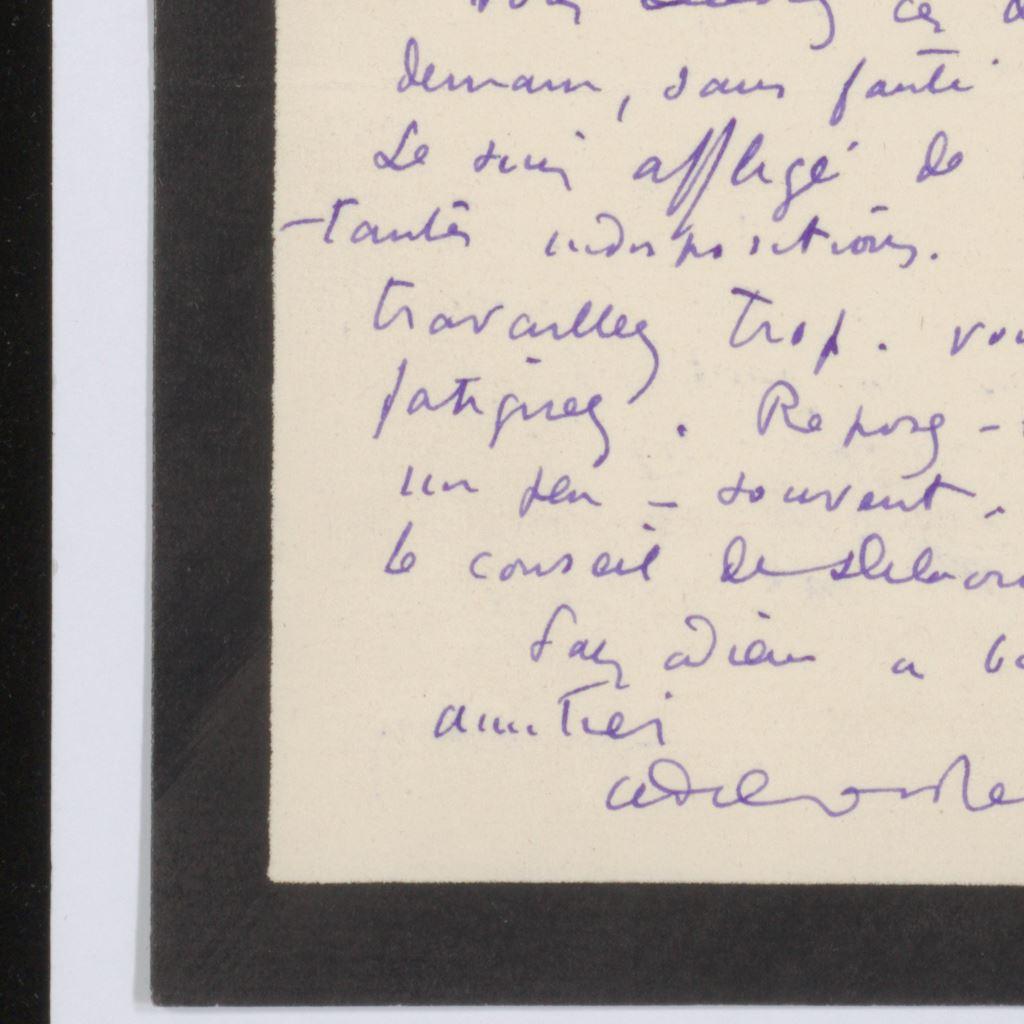 demain, sans faute
Je suis affligé de
-tantes indispositions.
travaillez trop. vou
fatiguez. Reposez-
un peu - souvent.
le conseil de
adieu a
amitiés